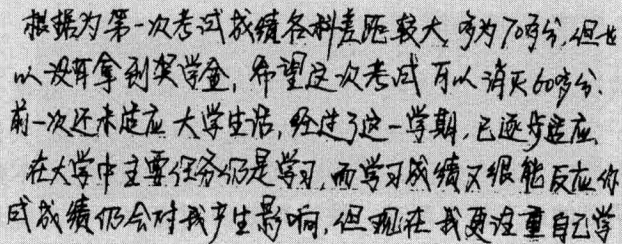 根据为第一次考试成绩各科差距较大,多为70多分,但也
以没有拿到奖学金,希望这次考试可以消灭60多分.
前一次还未适应大学生活,经过了这一学期,已逐步适应
在大学中主要任务仍是学习,而学习成绩又很能反应你
试成绩仍会对我产生影响,但现在我更注重自己学